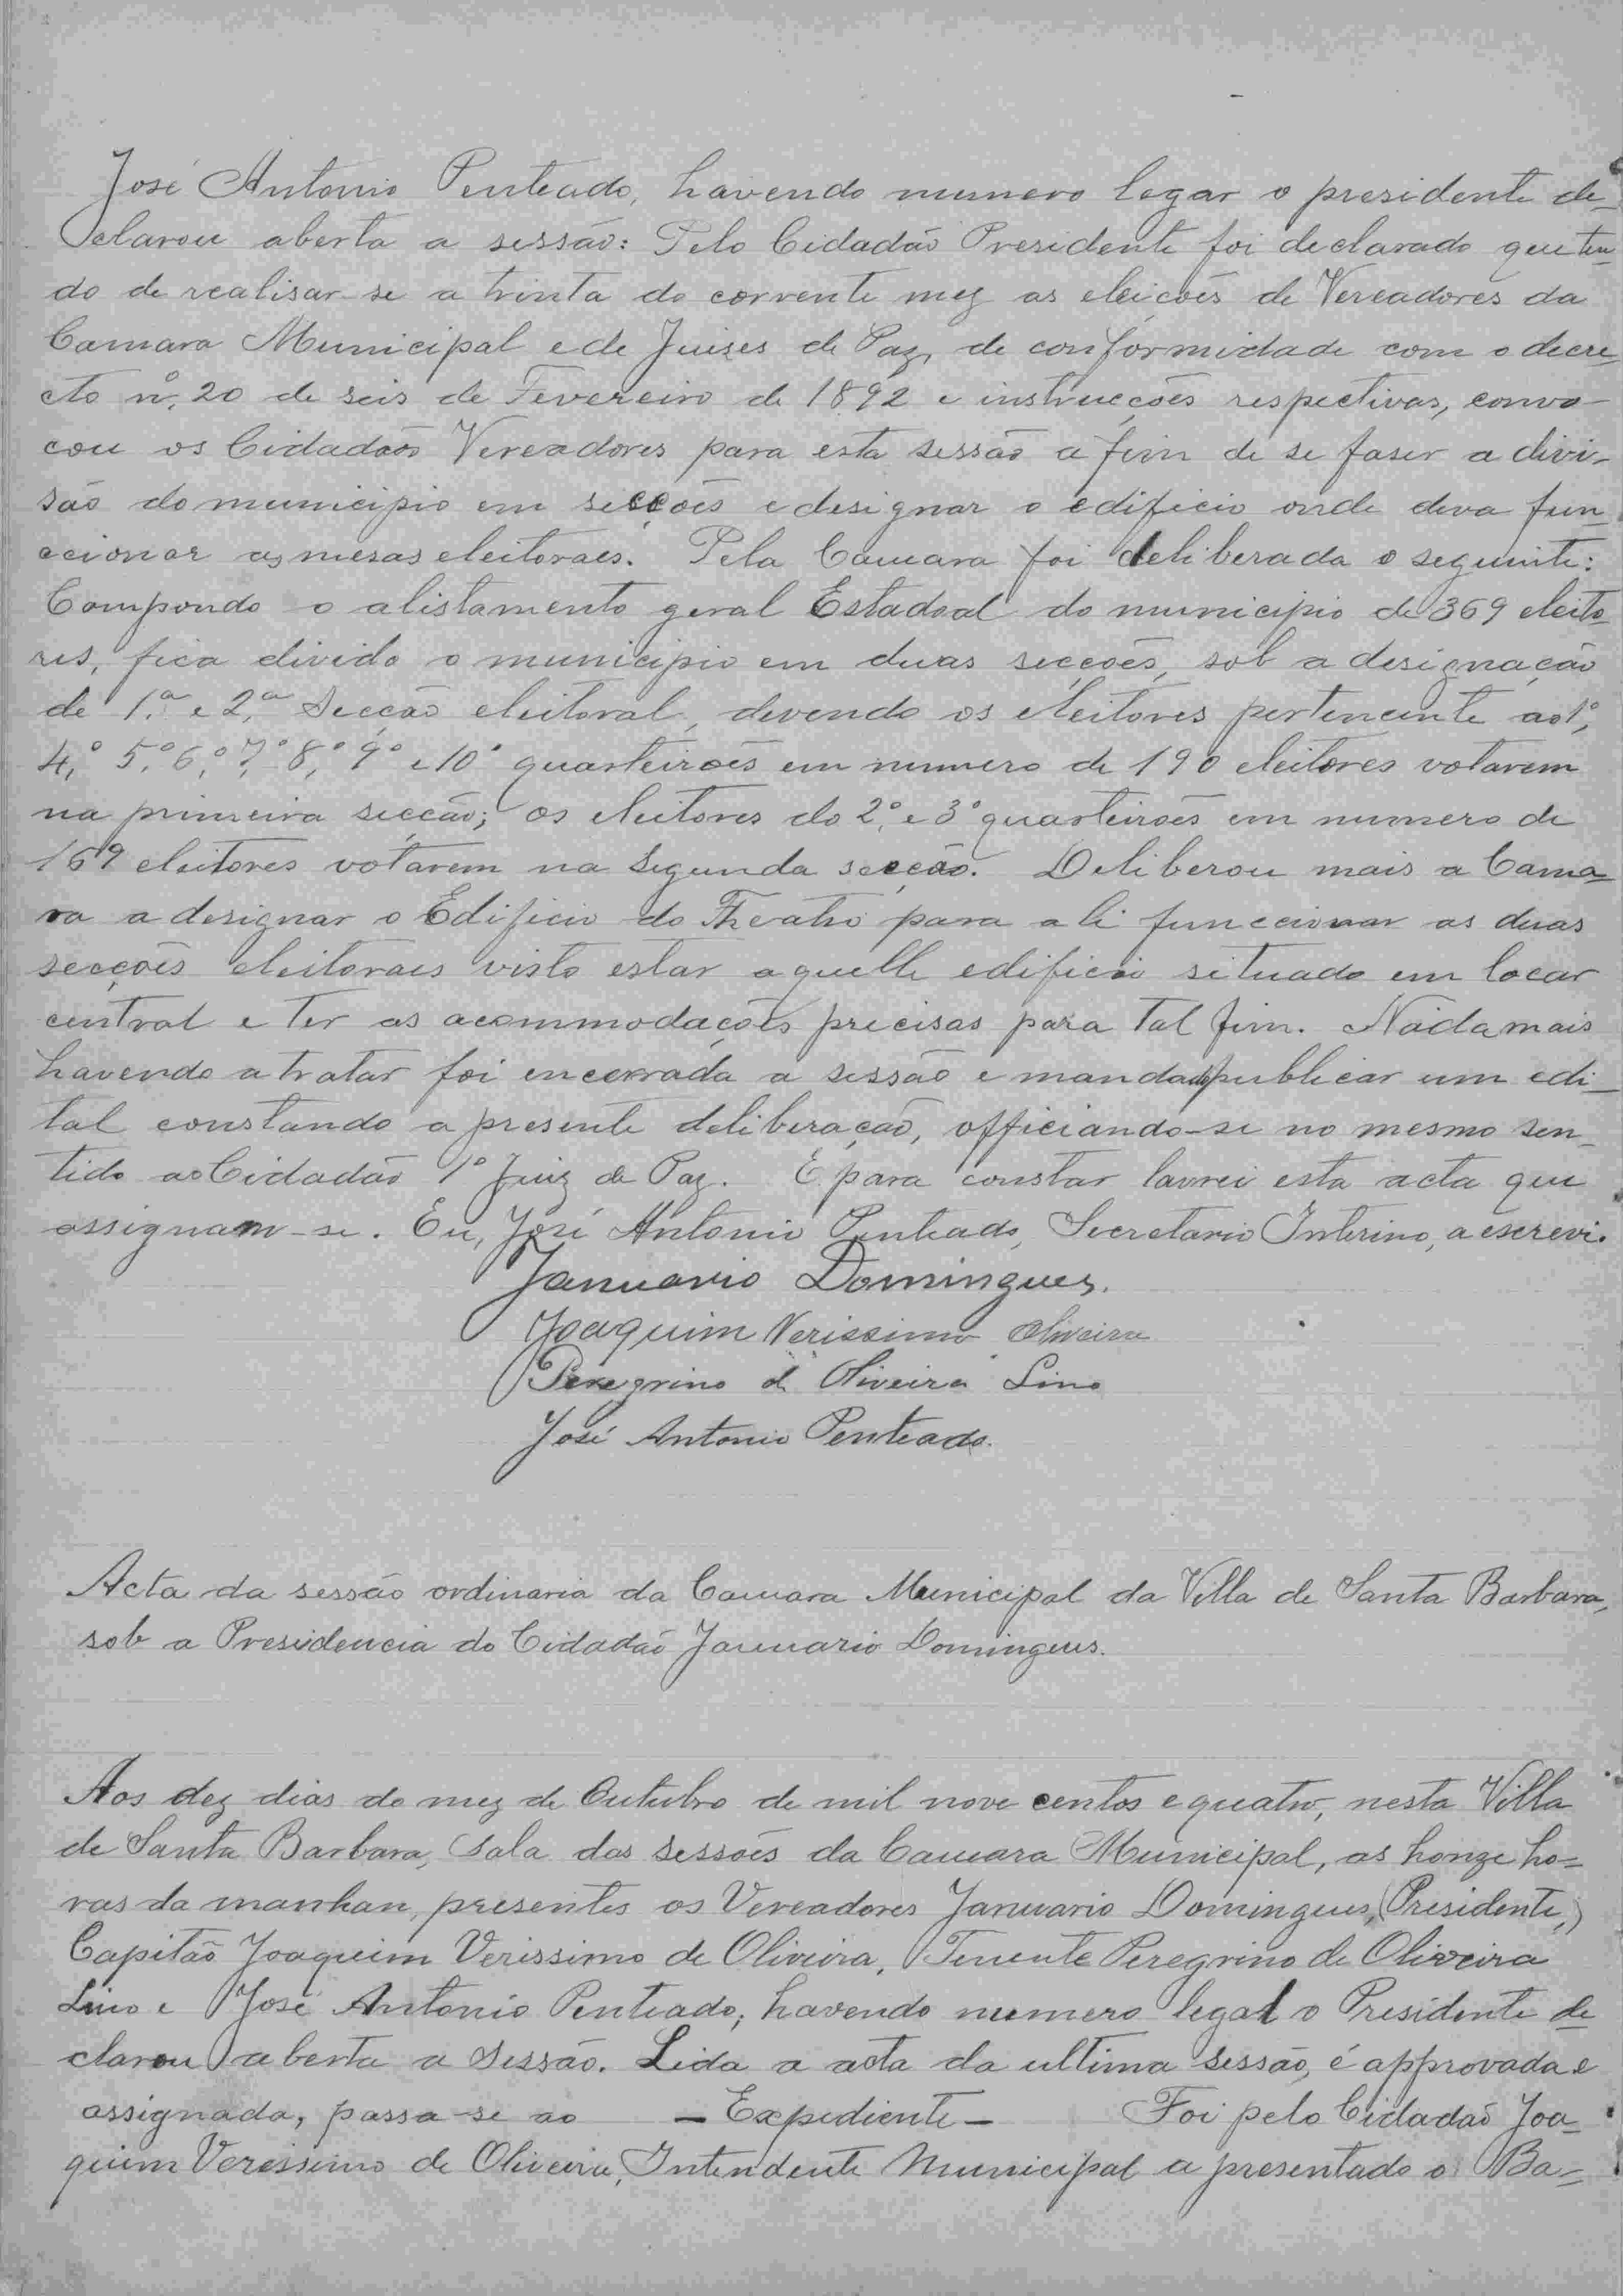 José Antonio Penteado, havendo numero legar o presidente de-
clarou aberta a sessão: Pelo Cidadão Presidente foi declarado que ten-
do de realisar-se a trinta do corrente mez as eleições de Vereadores da
Camara Municipal e de Juises de Paz, de conformidade com o decre-
cto nº 20 de seis de Fevereiro de 1892 e instrucções respectivas, convo-
cou os Cidadãos Vereadores para esta sessão a fim de se faser a divi-
são do municipio em secções e designar o edificio onde deva fun-
ccionar as mesas eleitoraes. Pela Camara foi deliberada o seguinte:
Compondo o alistamento geral Estadoal do municipio de 369 eleito-
res, fica divido o municipio em duas secções, sob a designação
de 1.ª e 2.ª Secção eleitoral, devendo os eleitores pertencente ao 1.º,
4.º 5.º 6.º 7.º 8.º 9º e 10º quarteirões em numero de 190 eleitores votarem
na primeira secção; os eleitores do 2.º e 3º quarteirões em numero de
169 eleitores votarem na Segunda secção. Deliberou mais a Cama-
ra a designar o Edificio do Theatro para ali funccionar as duas
secções eleitoraes visto estar aquelle edificio situado em locar
central e ter as acommodações precisas para tal fim. Nada mais
havendo a tratar foi encerrada a sessão e mandado publicar um edi-
tal constando a presente deliberação, officiando-se no mesmo sen-
tido ao Cidadão 1º Juiz de Paz. E para constar lavrei esta acta que
assignam-se. Eu, José Antonio Penteado, Secretario Interino, a escrevi.
Januario Domingues.
Joaquim Verissimo Oliveira
Peregrino d' Oliveira Lino
José Antonio Penteado.
Acta da sessão ordinaria da Camara Municipal da Villa de Santa Barbara,
sob a Presidencia do Cidadão Januario Domingues.
Aos dez dias do mez de Outubro de mil nove centos e quatro, nesta Villa
de Santa Barbara, Sala das Sessões da Camara Municipal, as honze ho-
ras da manhan, presentes os Vereadores Januario Domingues, (Presidente,)
Capitão Joaquim Verissimo de Oliveira, Tenente Peregrino de Oliveira
Lino e José Antonio Penteado; havendo numero legal o Presidente de-
clarou aberta a Sessão. Lida a acta da ultima Sessão, é approvada e
assignada, passa-se ao — Expediente — Foi pelo Cidadão Joa-
quim Verissimo de Oliveira, Intendente Municipal apresentado o Ba-